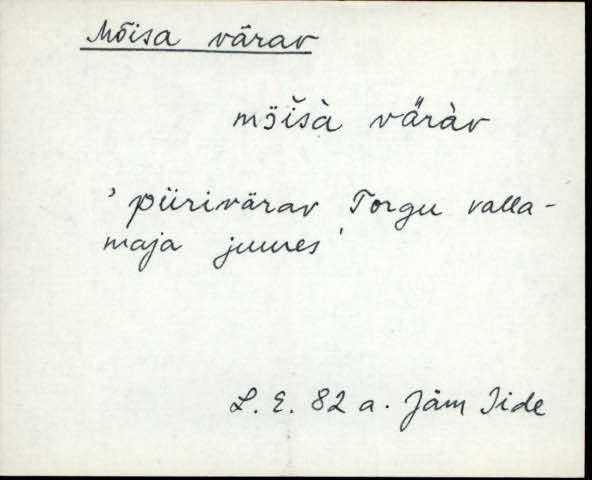 Mõisa värav
möišà väràv
'piirivärav Torgu valla-
maja juures'
L. E. 82 a. Jäm Iide